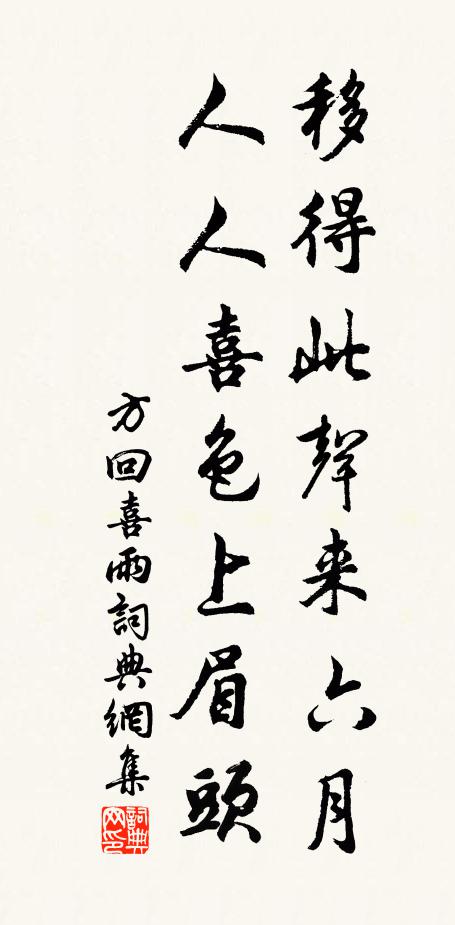 移得此聲来六月
人人喜色上眉頭
方回喜雨詞典網集
詞典网印